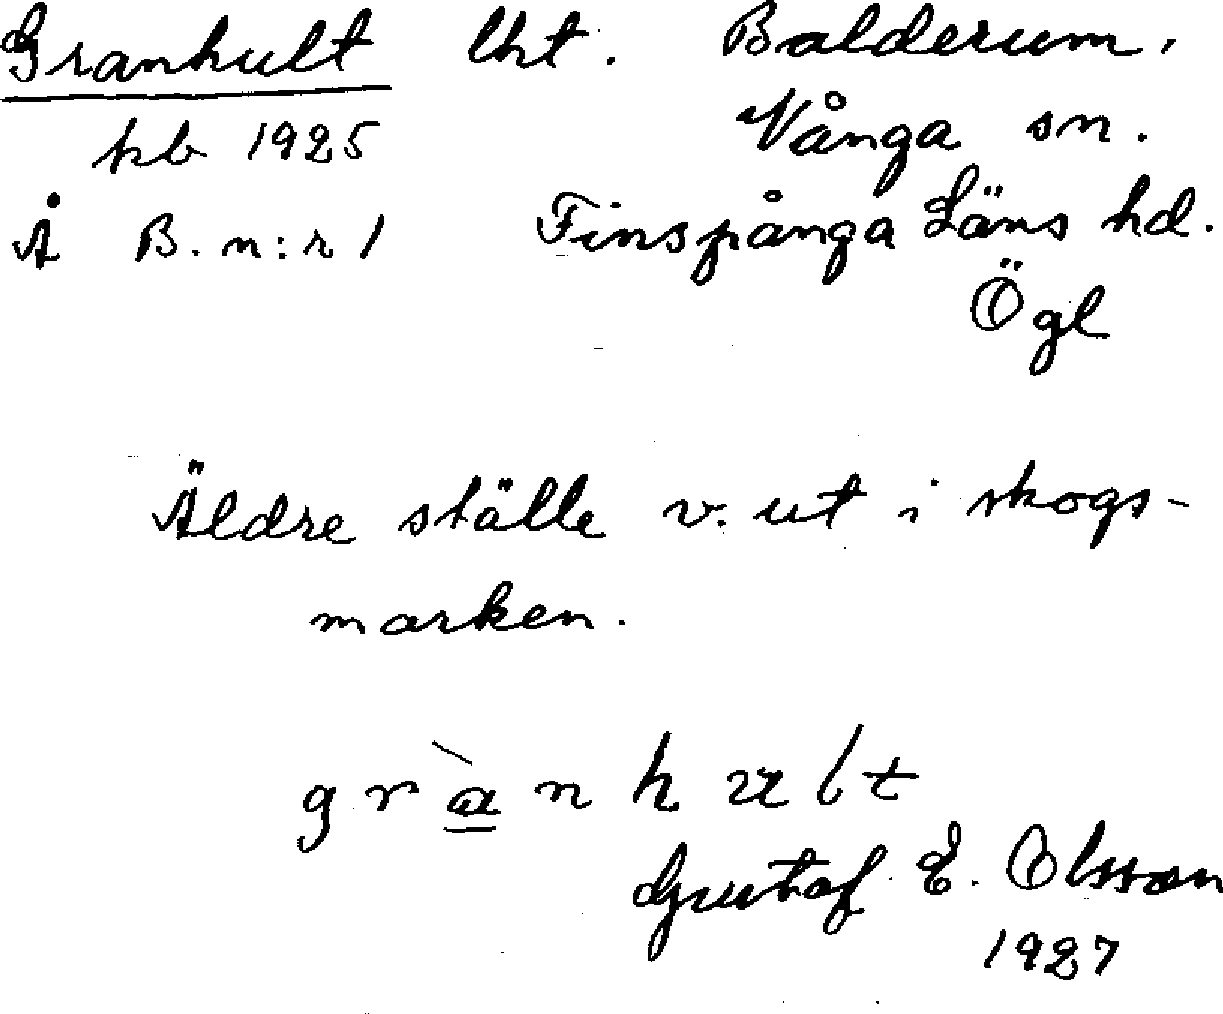 Granhult lht. Balderum,
kb 1925 Vånga sn.
Å B. n:r 1 Finspånga Läns hd.
Ögl
Äldre ställe v. ut i skogs-
marken.
gràn hult
Gustaf E. Olsson
1927